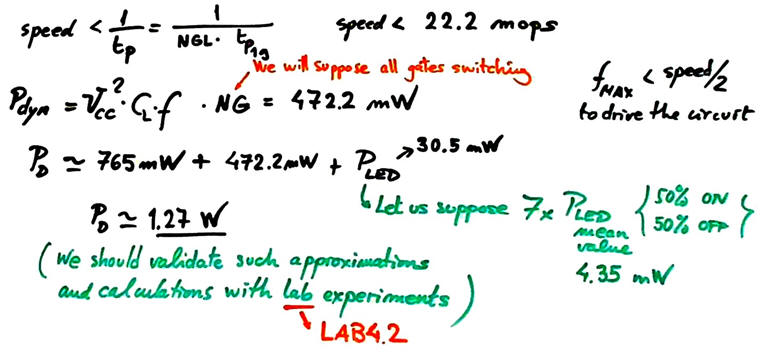 speed < 1/tp = 1/(NGL · tp1g)   speed < 22.2 mops
We will suppose all gates switching
Pdyn = Vcc² · CL · f · NG = 472.2 mW
fMAX < speed/2
to drive the circuit
PD ≃ 765 mW + 472.2 mW + PLED → 30.5 mW
Let us suppose 7x PLED mean value { 50% ON 50% OFF }
4.35 mW
PD ≃ 1.27 W
(We should validate such approximations
and calculations with lab experiments)
LAB4.2